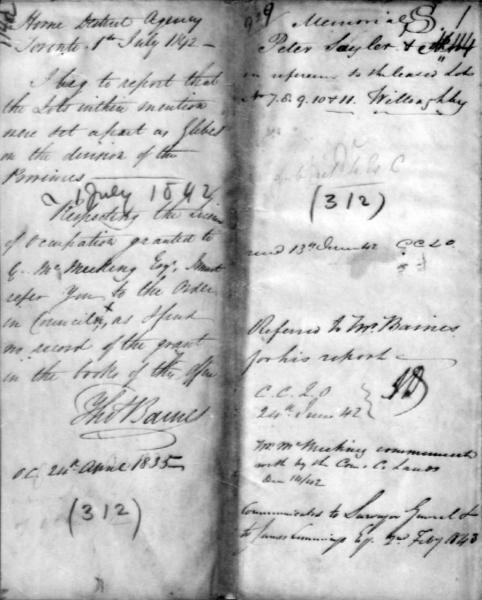 Home District Agency
Toronto 1st July 1842 —
I beg to report that
the Lots within mention
were set apart as Glebes
on the division of the
Provinces
1 July 1842
Respecting the
of Occupation granted to
Mc Meeking Esqr. I must
refer You to the Order
in Council x, as I find
no record of the grant
in the books of this office
Thos Baines
x O C 24th April 1835
(312)
939
Memorial S. 1
Peter Sayler &
in reference to the leased Lots
No 7. 8. 9. 10 & 11. Willoughby
(312)
recd 13th June 42 C C L O
Referred to Mr Baines
for his report
C. C. L. O
24th June 42
Mr Mc Meeking
with by the Com C. Lands
14/42
Communicated to Surveyor General &
to James Cummings Esq. 2nd Feby 1843